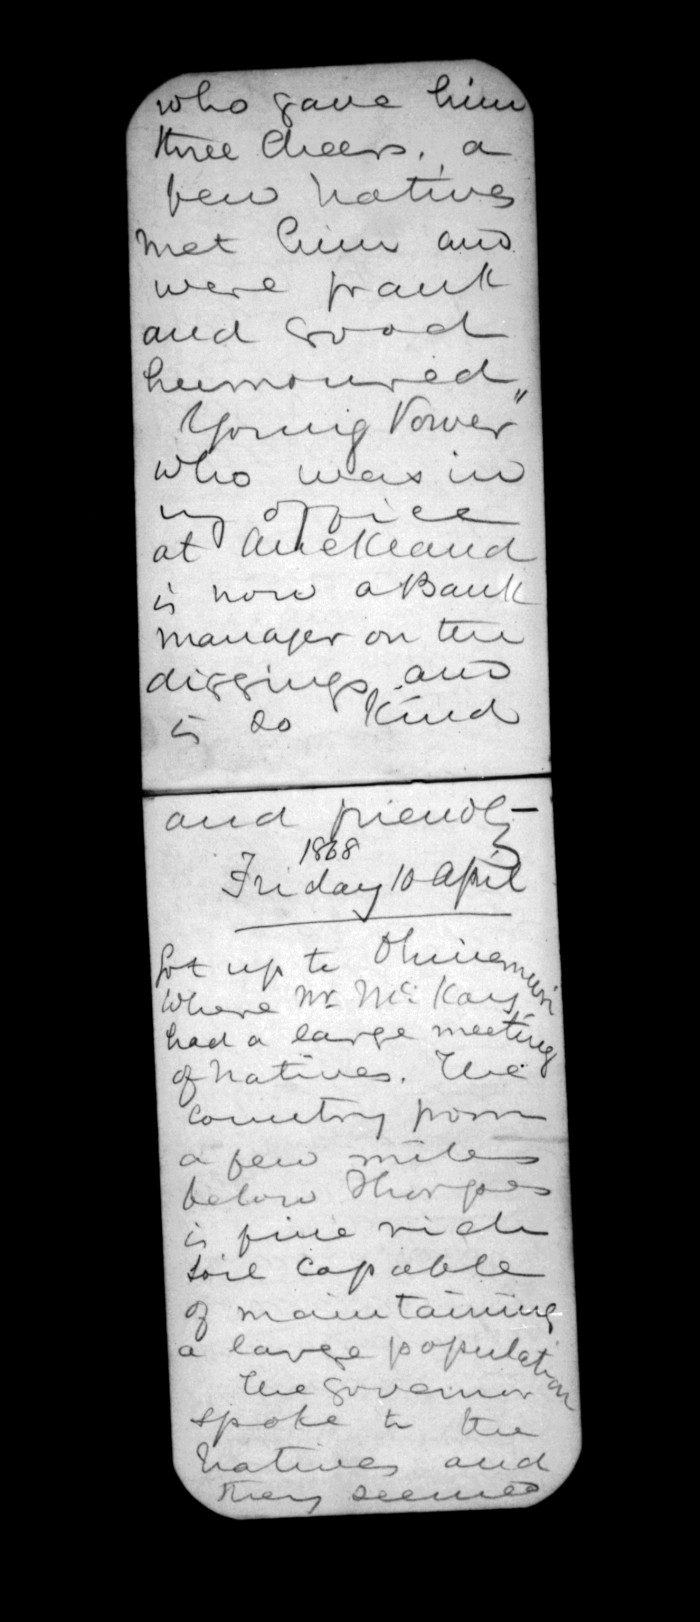 who gave him
three Cheers, a
few natives
met him and
were frank
and good
humoured"
Young Power
who was in
my office
at Auckland
is now a Bank
manager on the
diggings and
is so kind
and friendly
1868
Friday 10 April
Got up to Ohinemuri
where Mr McKay
had a large meeting
of natives. The
country from
a few miles
below Thorpes
is fine rich
soil capable
of maintaining
a large population
The Governor
spoke to the
natives and
they seemed